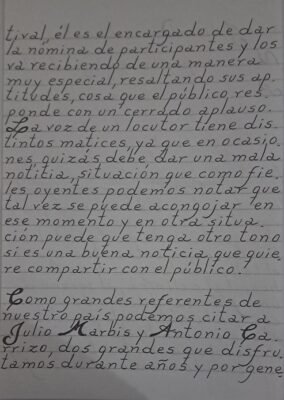 tival, él es el encargado de dar
la nómina de participantes y los
va recibiendo de una manera
muy especial, resaltando sus ap-
titudes, cosa que el público, res-
ponde con un cerrado aplauso.
La voz de un locutor tiene dis-
tintos matices, ya que en ocasio-
nes, quizás debe, dar una mala
notitia, situación que como fie-
les oyentes podemos notar que
tal vez se puede acongojar en
ese momento y en otra situa-
ción puede que tenga otro tono
si es una buena noticia, que quie-
re compartir con el público.
Como grandes referentes de
nuestro país podemos citar a
Julio Marbis y Antonio Ca-
rrizo, dos grandes que disfru-
tamos durante años y por gene-